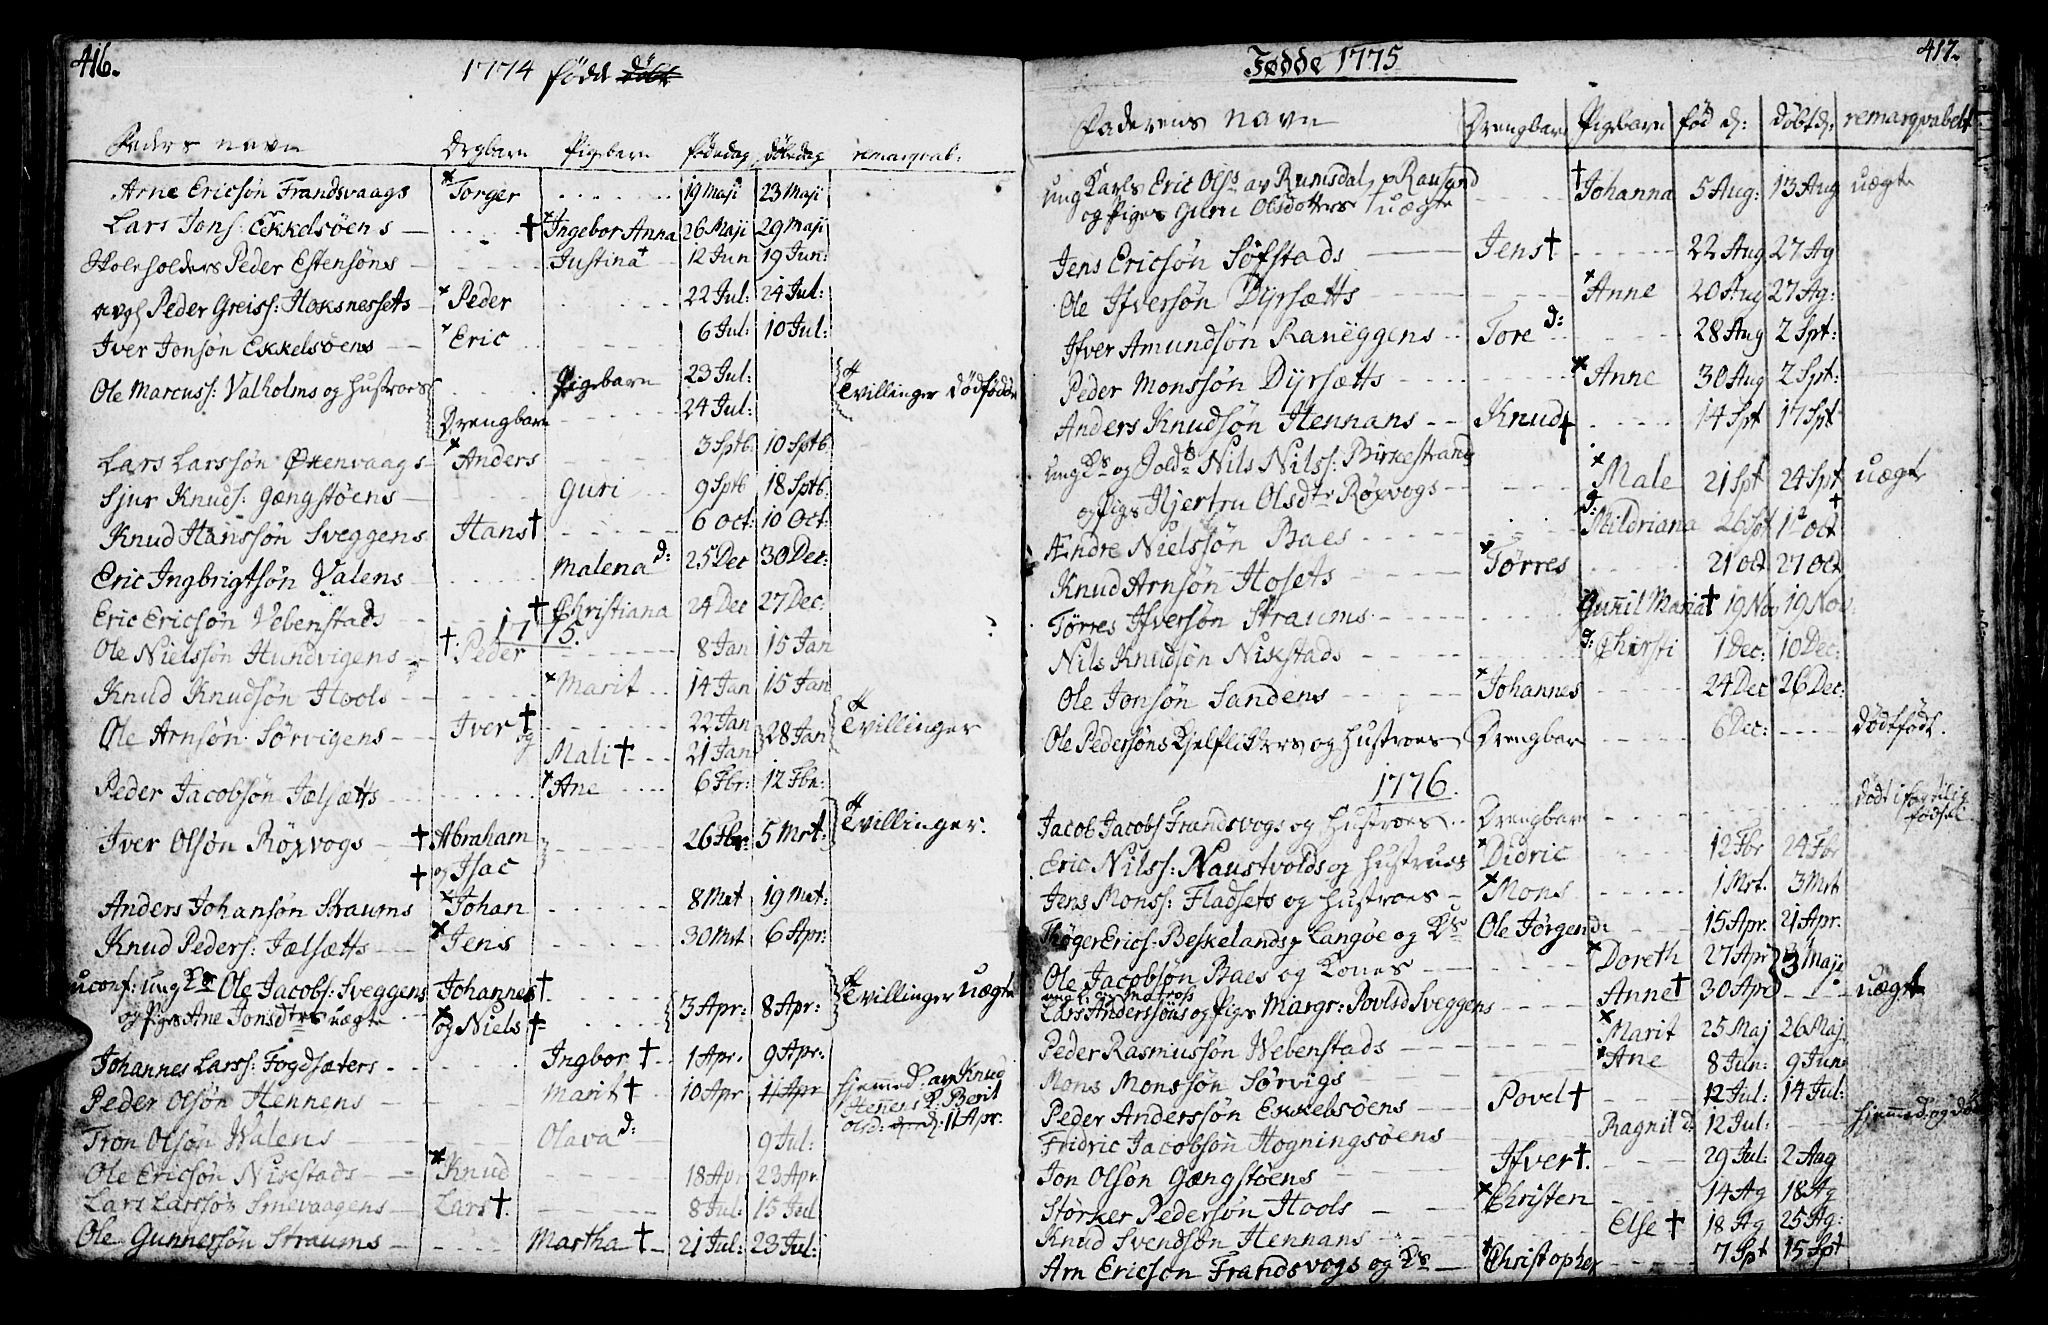 416.
1774 född
Faders navn Drgbarn Pigebarn fødedag døbedag remarqvab:
Arne Ericsøn Frandsvaags Torger 19 Maji 23 Maji
Lars Jons: Ekkelsøens † Ingebor Anna 26 Maji 29 Maji
Skoleholders Peder Estensøns Justina † 12 Jun 19 Jun:
Peder Greiss: Hoksnessets Peder 22 Jul: 24 Jul:
Iver Jonsøn Ekkelsøens Eric 6 Jul: 10 Jul:
Ole Marcuss: Valholms og Hustroes Pigebarn 23 Jul: Tvillinger dødfødde
Drengbarn 24 Jul:
Lars Larssøn Ørenvaags Anders 3 Sptb. 10 Sptb.
Sjur Knuds: Gængstøens Guri 9 Sptb 18 Sptb.
Knud Hanssøn Sveggens Hans † 6 Oct: 10 Oct:
Eric Ingbrigtsøn Valens Malena d: 25 Dec 30 Dec:
Eric Ericsøn Vebenstads † Christiana 24 Dec 27 Dec:
1775.
Ole Nielssøn Hundvigens † Peder 8 Jan 15 Jan
Knud Knudsøn Hools Marit 14 Jan 15 Jan
Ole Arnsøn Sørvigens Iver † og 22 Jan 28 Jan Tvillinger
Mali † 21 Jan
Peder Jacobsøn Jælsætts Ane 6 Fbr: 12 Fbr:
Iver Olsøn Røxvogs † Abraham 26 Fbr: 5 Mrt: Tvillinger.
† og Isac
Anders Johansøn Straums Johan 8 Mrt 19 Mrt:
Knud Peders: Jælsætts Jens 30 Mrt 6 Apr:
uconf: ung Ole Jacobs: Sveggens Johannes † 3 Apr: 8 Apr: Tvillinger uægte
og Pige Ane Jonsdtrs uægte og Niels †
Johannes Larss: Fogdsæters Ingbor † 1 Apr. 9 Apr:
Peder Olsøn Hennens Marit † 10 Apr 11 Apr hjemmed. av Knud
Hennens K: Berit
Olsd: d. 11 Apr:
Tron Olsøn Walens Olava d: 9 Jul:
Ole Ericsøn Nikstads Knud 18 Apr 23 Apr
Lars Larssøn Smevaagens Lars † 8 Jul: 15 Jul
Ole Gunnersøn Straums Martha † 21 Jul: 23 Jul:
417.
Fødde 1775
Faderens navn Drengbarn Pigebarn fød d: døbt d: remarqvabelt
ung Karls Eric Olss av Rumsdal p Rausand † Johanna 5 Aug: 13 Aug uægte
og Piges Guru Olsdotters uægte
Jens Ericsøn Søfstads Jens † 22 Aug 27 Ag
Ole Ifversøn Dyrsætts Anne 20 Aug 27 Ag:
Ifver Amundsøn Raneggens Tore d: 28 Aug 2 Spt:
Peder Monssøn Dyrsætts Anne 30 Aug 2 Spt:
Anders Knudsøn Hennans Knud † 14 Spt 17 Spt
ung Ks og Sold: Nils Nilss: Birkestrand Male 21 Spt 24 Spt uægte
og Pigs Hjertru Olsdtr Røxvogs
Ændre Nielssøn Baes Mildriana 26 Spt 1 Oct
Knud Arnsøn Hosets Tørres 21 Oct 27 Oct
Tørres Ifversøn Straums Gunnil Maria † 19 Nov 19 Nov.
Nils Knudsøn Nikstads d: Chirsti 1 Dec: 10 Dec:
Ole Jonsøn Sandens Johannes 24 Dec 26 Dec:
Ole Pedersøns og Hustroes Drengbar 6 Dec: dødfødt.
1776.
Jacob Jacobs Frandsvogs og Hustroes Drengbar død i
fødsel
Eric Nilss: Naustvolds og Hustrues Didric 12 Fbr 24 Fbr
Jens Monss: Fladsets og Hustroes Mons 1 Mrt. 3 Mrt
Thøger Erics: Beskelands p Langøe og Ks Ole Jørgen d: 15 Apr. 21 Apr.
Ole Jacobsøn Baes og Kones Doreth 27 Apr 3 Maji
Lars Anderssøns og Piges Margr: Povlsd Sveggens Anne † 30 Apr uægte
Peder Rasmussøn Webenstads Marit 25 Maj 26 Maj
Mons Monssøn Sørvigs Ane 8 Jun: 9 Jun:
Peder Anderssøn Ekkelsøens Povel † 12 Jul: 14 Jul:
Fridric Jacobsøn Hogningsøens Ragnil d. 12 Jul: hjemmed. og død
Jon Olsøn Gængstøens Ifver †. 29 Jul: 2 Aug
Størker Pedersøn Hools Christen 14 Ag 18 Ag
Knud Svendsøn Hennans Else † 18 Ag 25 Ag:
Arn Ericsøn Frandsvogs og Ks Christopher 7 Spt 15 Spt